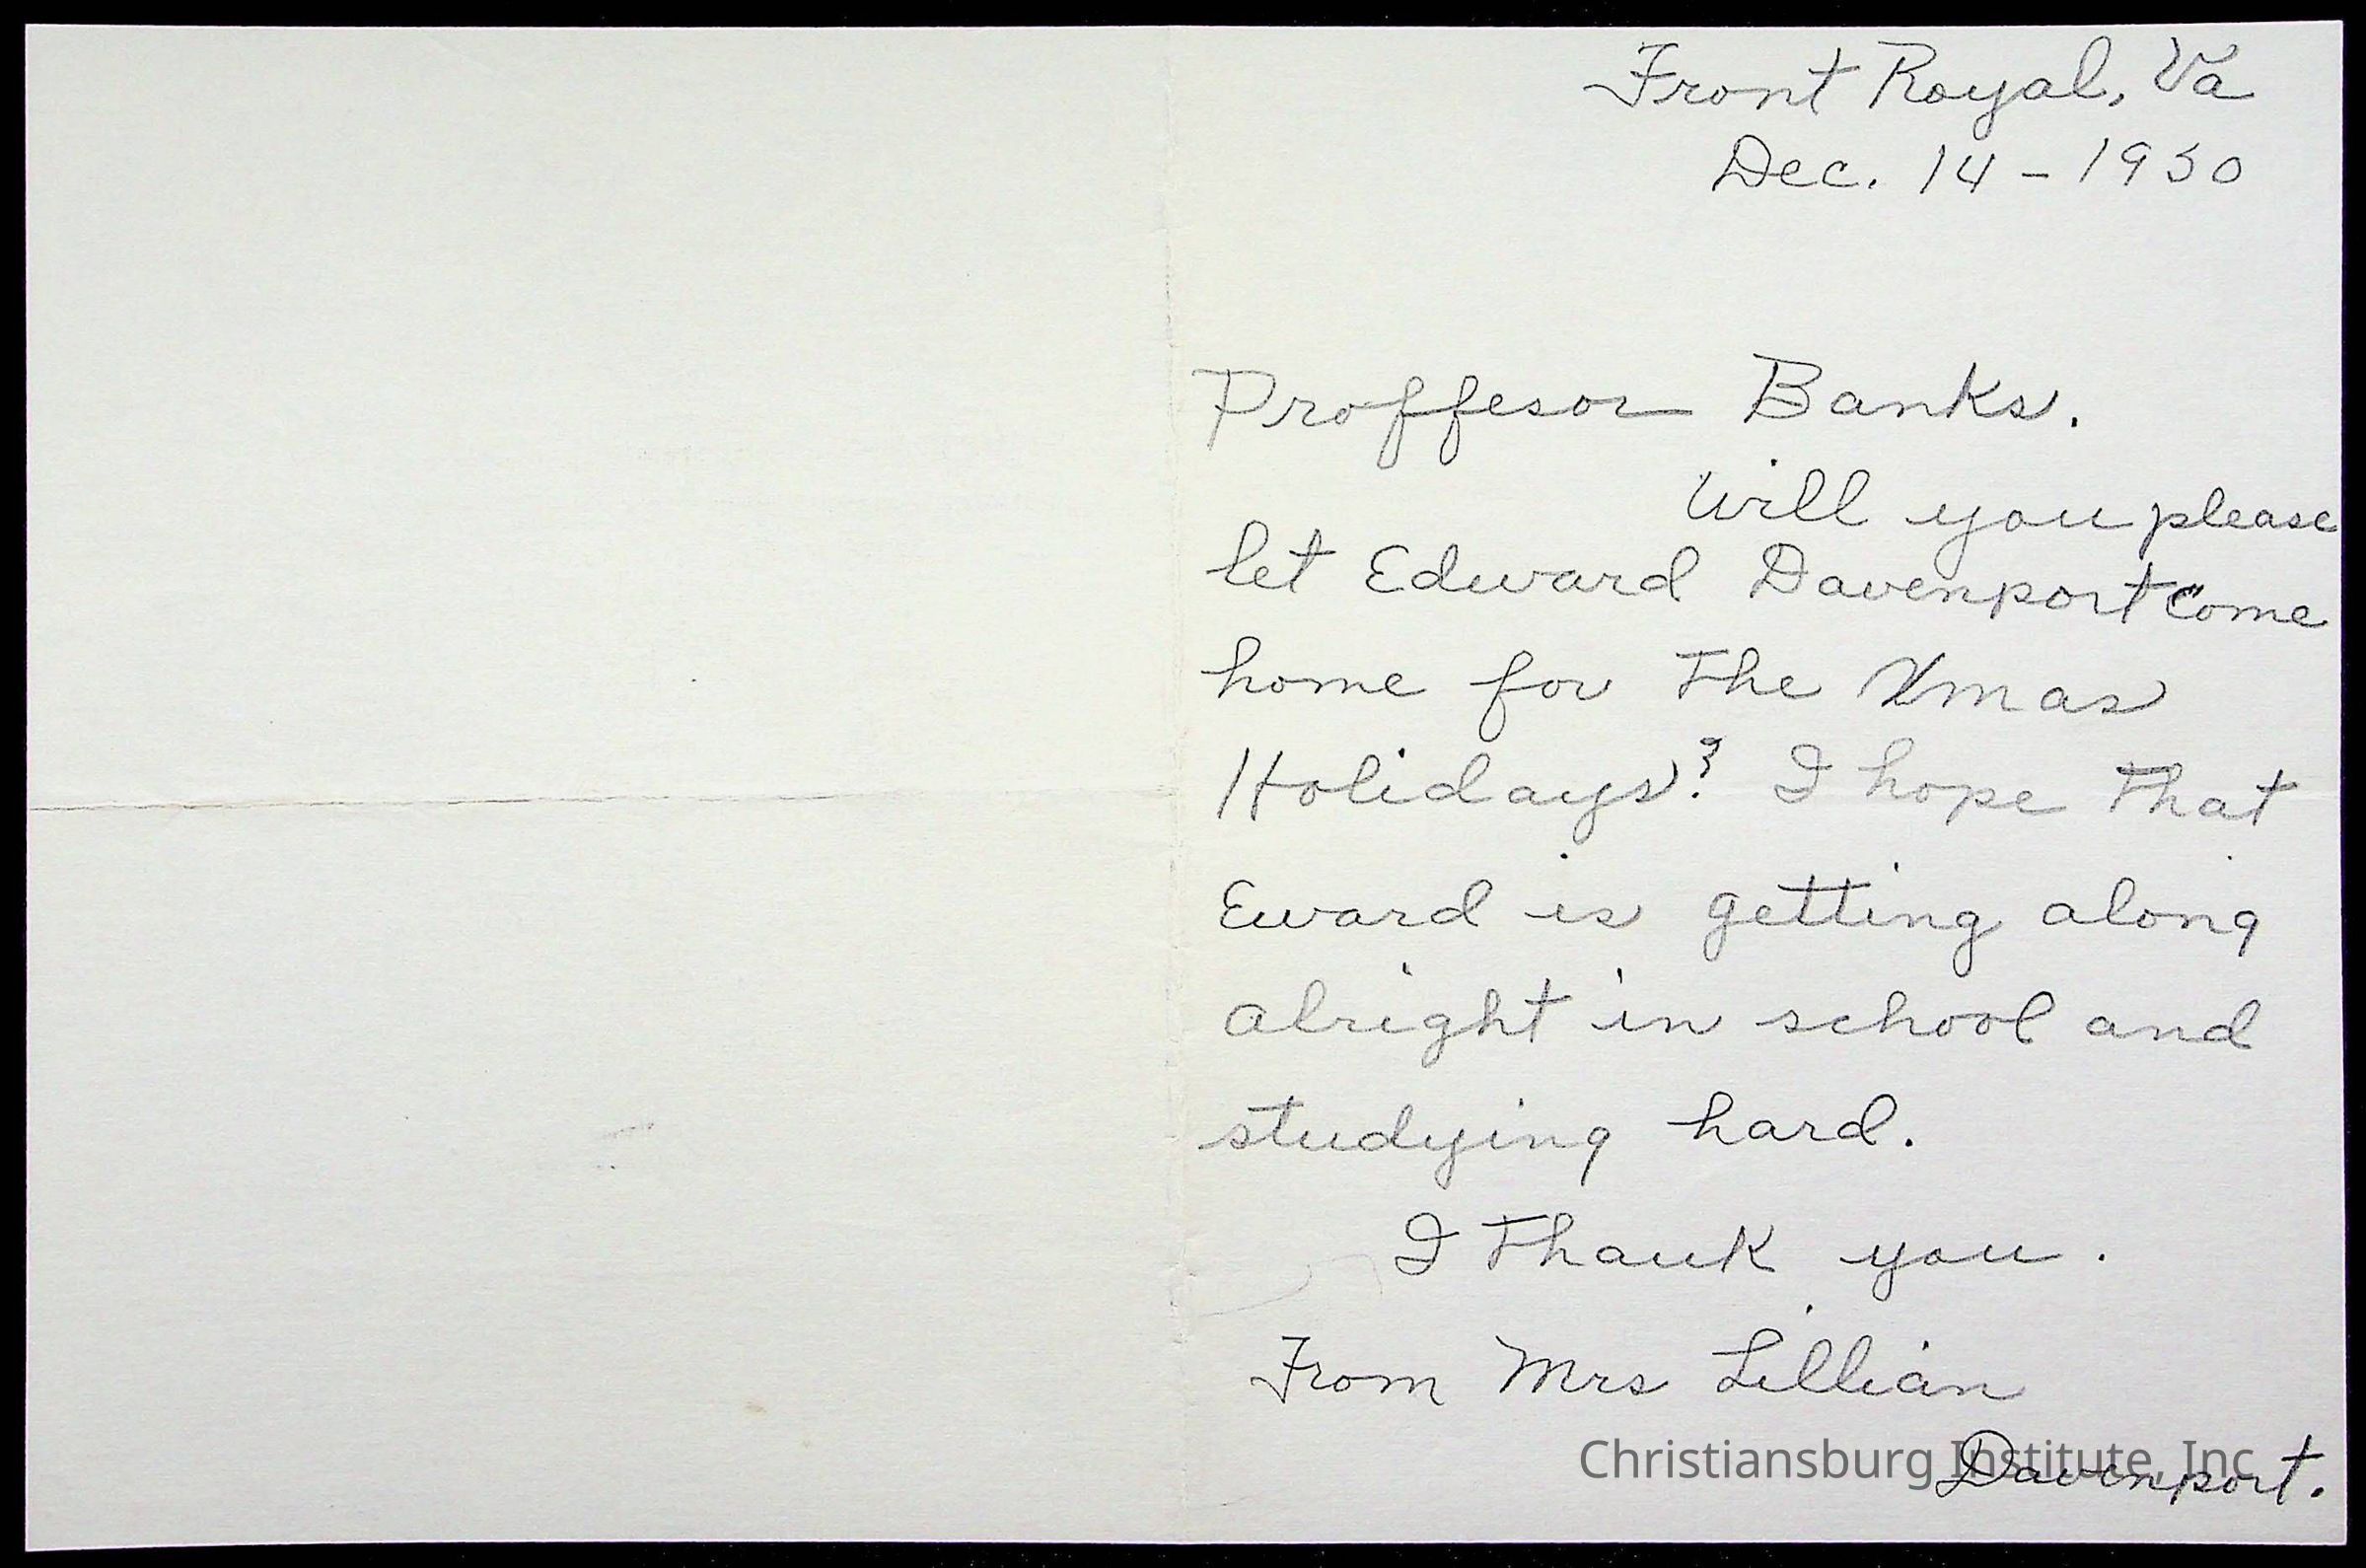 Front Royal, Va
Dec. 14 - 1950
Proffesor Banks.
Will you please
let Edward Davenport come
home for The Xmas
Holidays? I hope That
Eward is getting along
alright in school and
studying hard.
I Thank you.
From Mrs Lillian
Davenport.
Christiansburg Institute, Inc